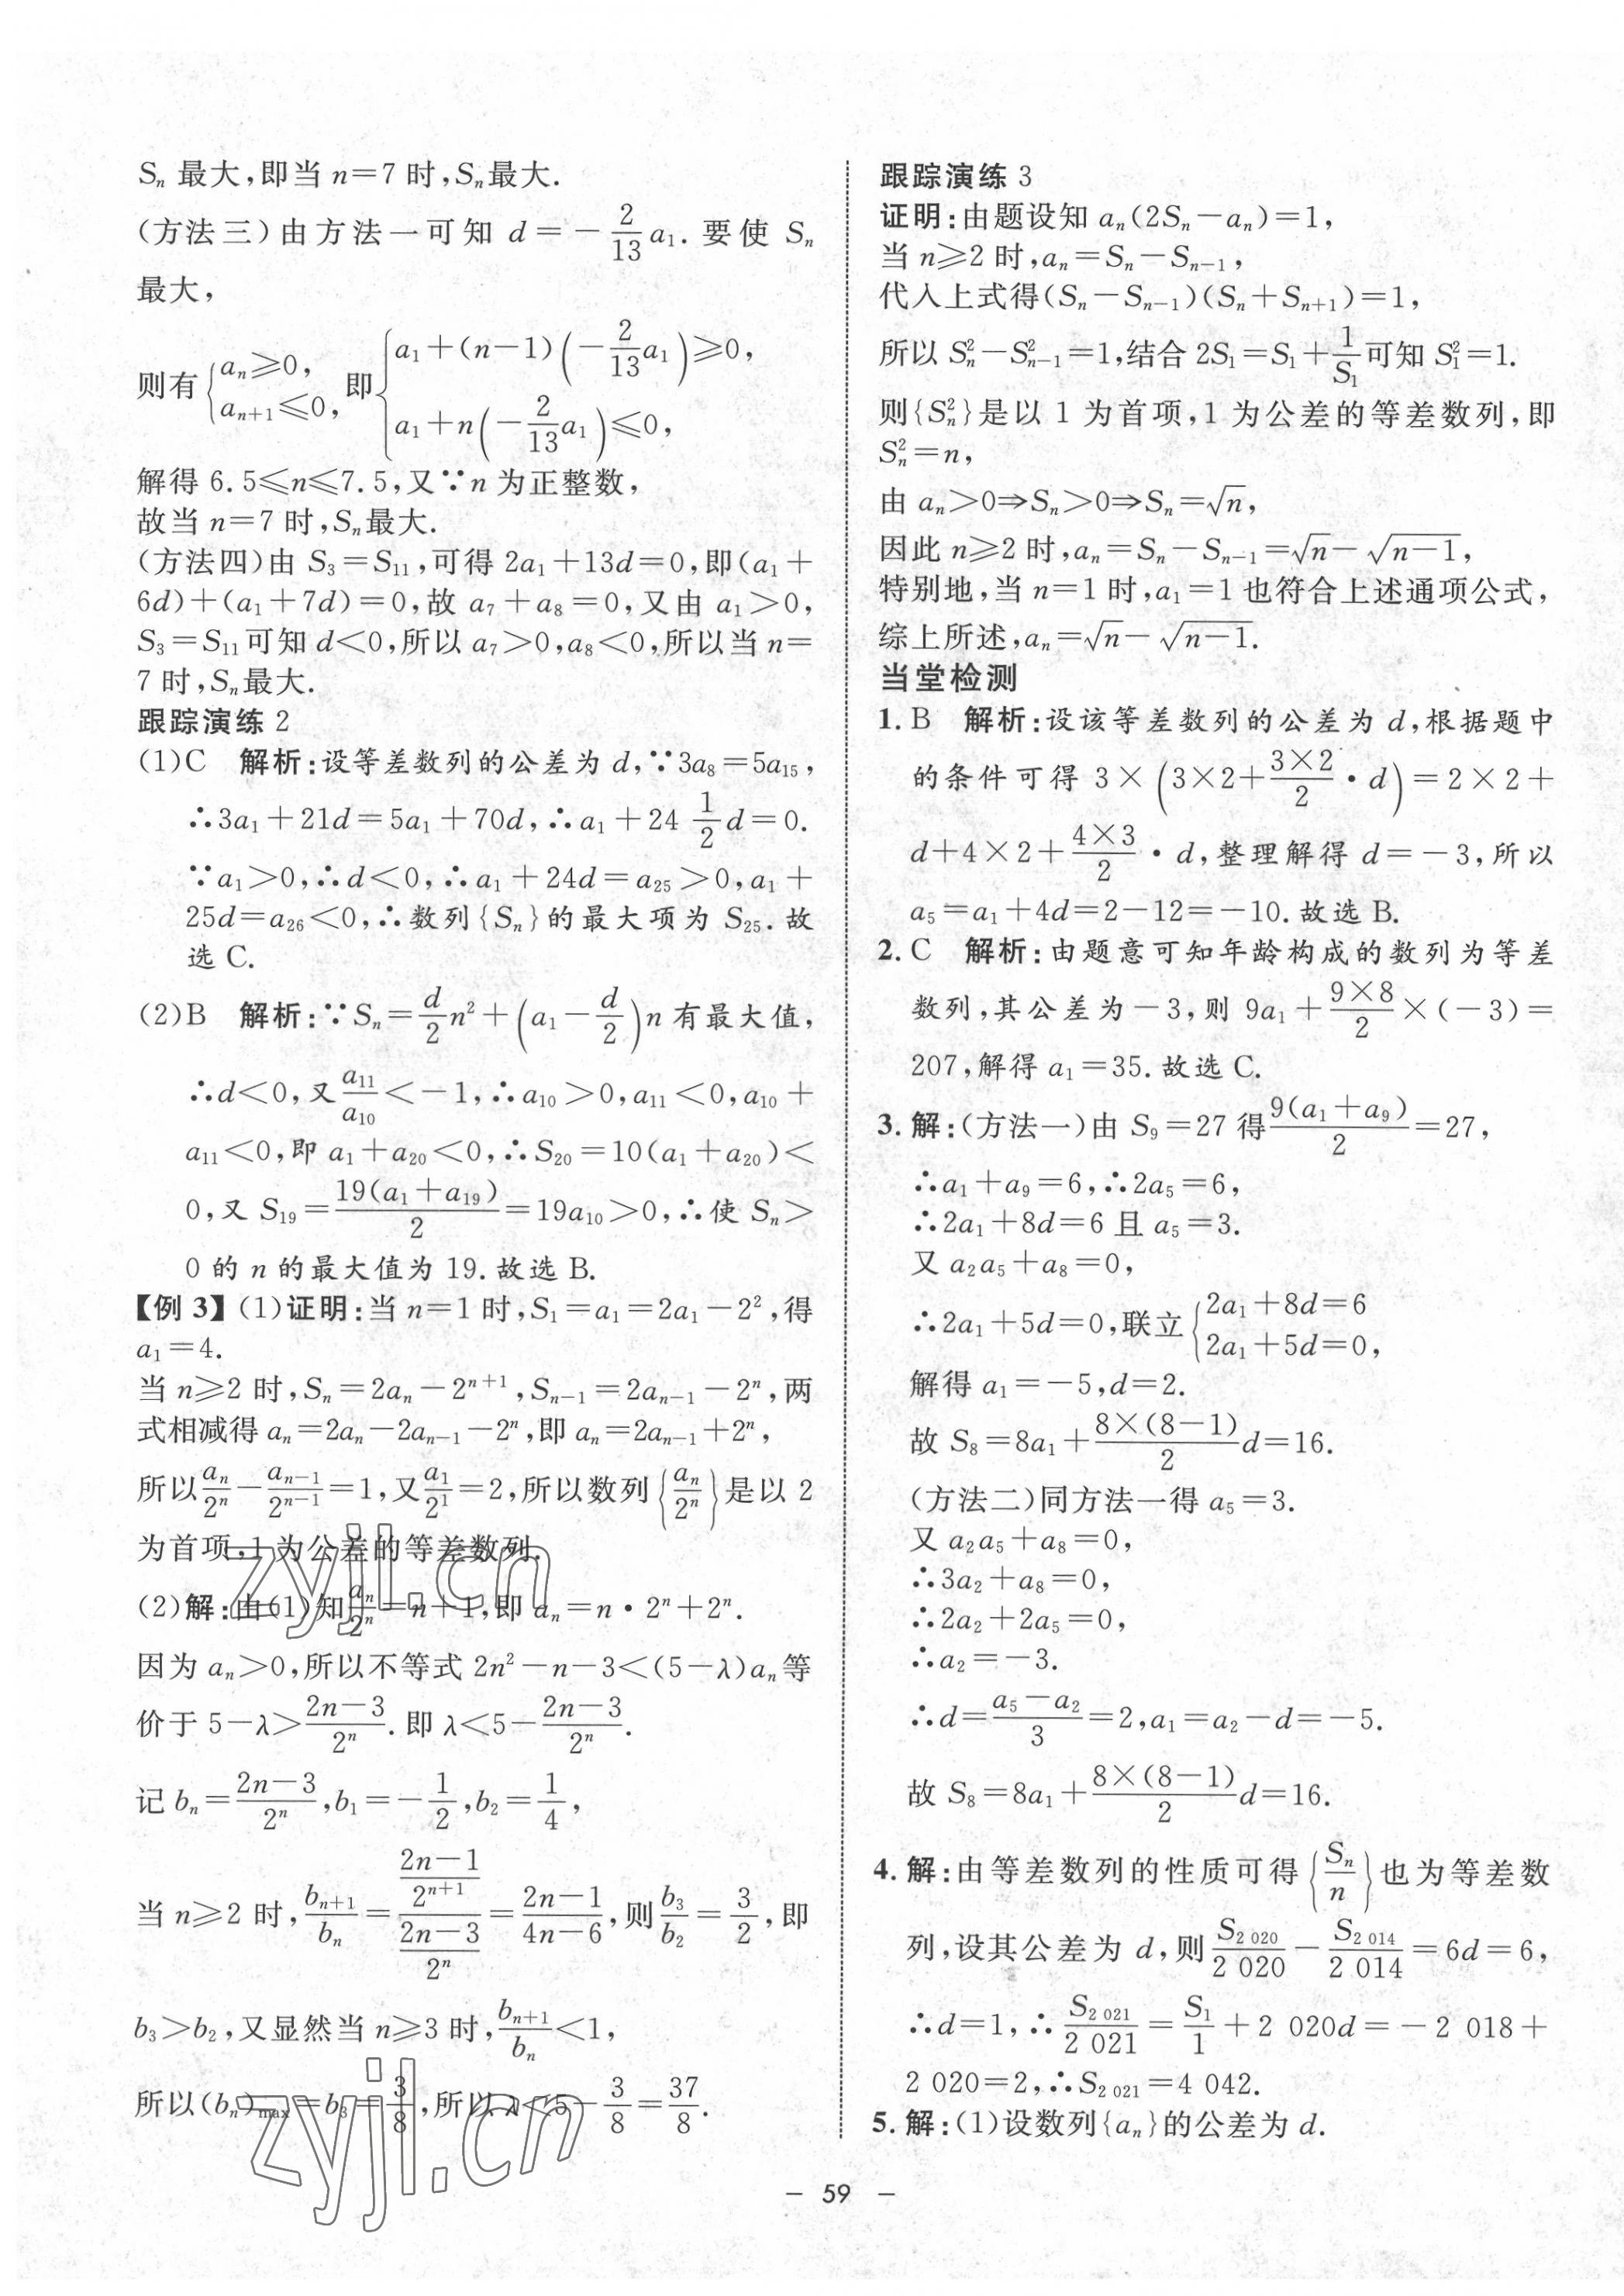 S_n 最大,即当 n=7 时,S_n最大.
(方法三)由方法一可知 d=-\frac{2}{13}a_1. 要使 S_n
最大,
则有{a_n≥0, a_{n+1}≤0, 即{a_1+(n-1)(-\frac{2}{13}a_1)≥0, a_1+n(-\frac{2}{13}a_1)≤0,
解得 6.5≤n≤7.5,又∵n 为正整数,
故当 n=7 时,S_n最大.
(方法四)由 S_3=S_{11},可得 2a_1+13d=0,即(a_1+
6d)+(a_1+7d)=0,故 a_7+a_8=0,又由 a_1>0,
S_3=S_{11}可知 d<0,所以 a_7>0,a_8<0,所以当 n=
7 时,S_n最大.
跟踪演练 2
(1)C 解析:设等差数列的公差为 d,∵3a_8=5a_{15},
∴3a_1+21d=5a_1+70d,∴a_1+24\frac{1}{2}d=0.
∵a_1>0,∴d<0,∴a_1+24d=a_{25}>0,a_1+
25d=a_{26}<0,∴数列{S_n}的最大项为 S_{25}. 故
选 C.
(2)B 解析:∵S_n=\frac{d}{2}n^2+(a_1-\frac{d}{2})n 有最大值,
∴d<0,又\frac{a_{11}}{a_{10}}<-1,∴a_{10}>0,a_{11}<0,a_{10}+
a_{11}<0,即 a_1+a_{20}<0,∴S_{20}=10(a_1+a_{20})<
0,又 S_{19}=\frac{19(a_1+a_{19})}{2}=19a_{10}>0,∴使 S_n>
0 的 n 的最大值为 19. 故选 B.
【例 3】(1)证明:当 n=1 时,S_1=a_1=2a_1-2^2,得
a_1=4.
当 n≥2 时,S_n=2a_n-2^{n+1},S_{n-1}=2a_{n-1}-2^n,两
式相减得 a_n=2a_n-2a_{n-1}-2^n,即 a_n=2a_{n-1}+2^n,
所以\frac{a_n}{2^n}-\frac{a_{n-1}}{2^{n-1}}=1,又\frac{a_1}{2^1}=2,所以数列{\frac{a_n}{2^n}}是以 2
为首项,1 为公差的等差数列.
(2)解:由(1)知\frac{a_n}{2^n}=n+1,即 a_n=n·2^n+2^n.
因为 a_n>0,所以不等式 2n^2-n-3<(5-λ)a_n等
价于 5-λ>\frac{2n-3}{2^n}. 即 λ<5-\frac{2n-3}{2^n}.
记 b_n=\frac{2n-3}{2^n},b_1=-\frac{1}{2},b_2=\frac{1}{4},
当 n≥2 时,\frac{b_{n+1}}{b_n}=\frac{\frac{2n-1}{2^{n+1}}}{\frac{2n-3}{2^n}}=\frac{2n-1}{4n-6},则\frac{b_3}{b_2}=\frac{3}{2},即
b_3>b_2,又显然当 n≥3 时,\frac{b_{n+1}}{b_n}<1,
所以(b_n)_{max}=b_3=\frac{3}{8},所以 λ<5-\frac{3}{8}=\frac{37}{8}.
跟踪演练 3
证明:由题设知 a_n(2S_n-a_n)=1,
当 n≥2 时,a_n=S_n-S_{n-1},
代入上式得(S_n-S_{n-1})(S_n+S_{n+1})=1,
所以 S_n^2-S_{n-1}^2=1,结合 2S_1=S_1+\frac{1}{S_1}可知 S_1^2=1.
则{S_n^2}是以 1 为首项,1 为公差的等差数列,即
S_n^2=n,
由 a_n>0⇒S_n>0⇒S_n=√n,
因此 n≥2 时,a_n=S_n-S_{n-1}=√n-√(n-1),
特别地,当 n=1 时,a_1=1 也符合上述通项公式,
综上所述,a_n=√n-√(n-1).
当堂检测
1. B 解析:设该等差数列的公差为 d,根据题中
的条件可得 3×(3×2+\frac{3×2}{2}·d)=2×2+
d+4×2+\frac{4×3}{2}·d,整理解得 d=-3,所以
a_5=a_1+4d=2-12=-10. 故选 B.
2. C 解析:由题意可知年龄构成的数列为等差
数列,其公差为-3,则 9a_1+\frac{9×8}{2}×(-3)=
207,解得 a_1=35. 故选 C.
3. 解:(方法一)由 S_9=27 得\frac{9(a_1+a_9)}{2}=27,
∴a_1+a_9=6,∴2a_5=6,
∴2a_1+8d=6 且 a_5=3.
又 a_2a_5+a_8=0,
∴2a_1+5d=0,联立{2a_1+8d=6 2a_1+5d=0,
解得 a_1=-5,d=2.
故 S_8=8a_1+\frac{8×(8-1)}{2}d=16.
(方法二)同方法一得 a_5=3.
又 a_2a_5+a_8=0,
∴3a_2+a_8=0,
∴2a_2+2a_5=0,
∴a_2=-3.
∴d=\frac{a_5-a_2}{3}=2,a_1=a_2-d=-5.
故 S_8=8a_1+\frac{8×(8-1)}{2}d=16.
4. 解:由等差数列的性质可得{\frac{S_n}{n}}也为等差数
列,设其公差为 d,则\frac{S_{2 020}}{2 020}-\frac{S_{2 014}}{2 014}=6d=6,
∴d=1,∴\frac{S_{2 021}}{2 021}=\frac{S_1}{1}+2 020d=-2 018+
2 020=2,∴S_{2 021}=4 042.
5. 解:(1)设数列{a_n}的公差为 d.
zyjl.cn
zyjl.cn
- 59 -